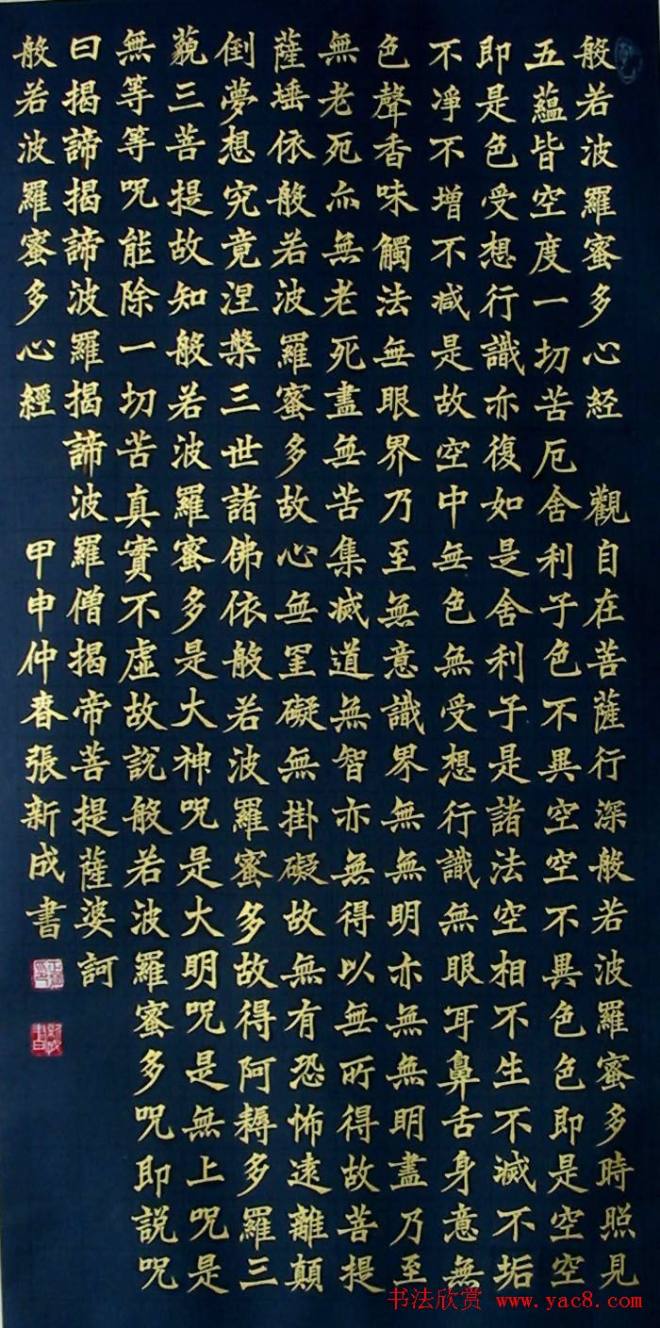 般若波羅蜜多心经　觀自在菩薩行深般若波羅蜜多時照見
五蘊皆空度一切苦厄舍利子色不異空空不異色色即是空空
即是色受想行識亦復如是舍利子是諸法空相不生不滅不垢
不凈不增不减是故空中無色無受想行識無眼耳鼻舌身意無
色聲香味觸法無眼界乃至無意識界無無明亦無無明盡乃至
無老死亦無老死盡無苦集滅道無智亦無得以無所得故菩提
薩埵依般若波羅蜜多故心無罣礙無掛礙故無有恐怖遠離顛
倒夢想究竟涅槃三世諸佛依般若波羅蜜多故得阿耨多羅三
藐三菩提故知般若波羅蜜多是大神咒是大明咒是無上咒是
無等等咒能除一切苦真實不虛故說般若波羅蜜多咒即說咒
曰揭諦揭諦波羅揭諦波羅僧揭帝菩提薩婆訶
般若波羅蜜多心經　甲申仲春張新成書
书法欣赏 www.yac8.com